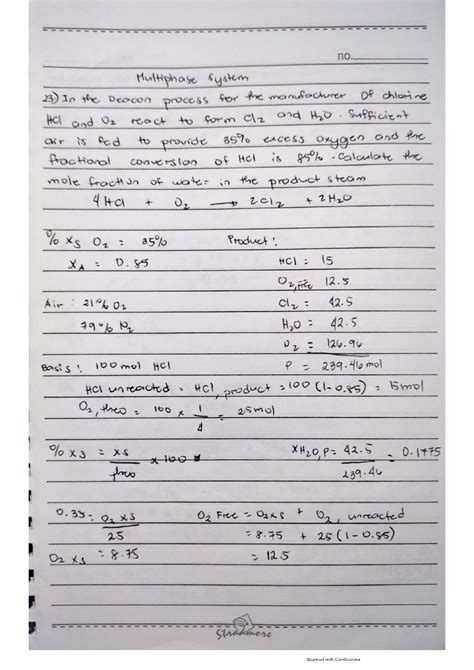 no.
Multiphase System
23) In the Deacon process for the manufacturer Of chlorine
HCl and O2 react to form Cl2 and H2O. Sufficient
air is fed to provide 35% excess oxygen and the
fractional conversion of HCl is 85%. Calculate the
mole fraction of water in the product steam
4HCl + O2 → 2Cl2 + 2H2O
% XS O2 = 35% Product:
XA = 0.85 HCl = 15
O2, free 12.5
Air: 21% O2 Cl2 = 42.5
79% N2 H2O = 42.5
N2 = 126.96
Basis: 100 mol HCl P = 239.46 mol
HCl unreacted = HCl, product = 100 (1-0.85) = 15mol
O2, theo = 100 x 1/4 = 25mol
% XS = XS/theo x 100 XH2O,P = 42.5/239.46 = 0.1775
0.35 = O2 XS/25 O2 Free = O2XS + O2, unreacted
= 8.75 + 25 (1-0.85)
O2 XS = 8.75 = 12.5
Stradmore
Scanned with CamScanner